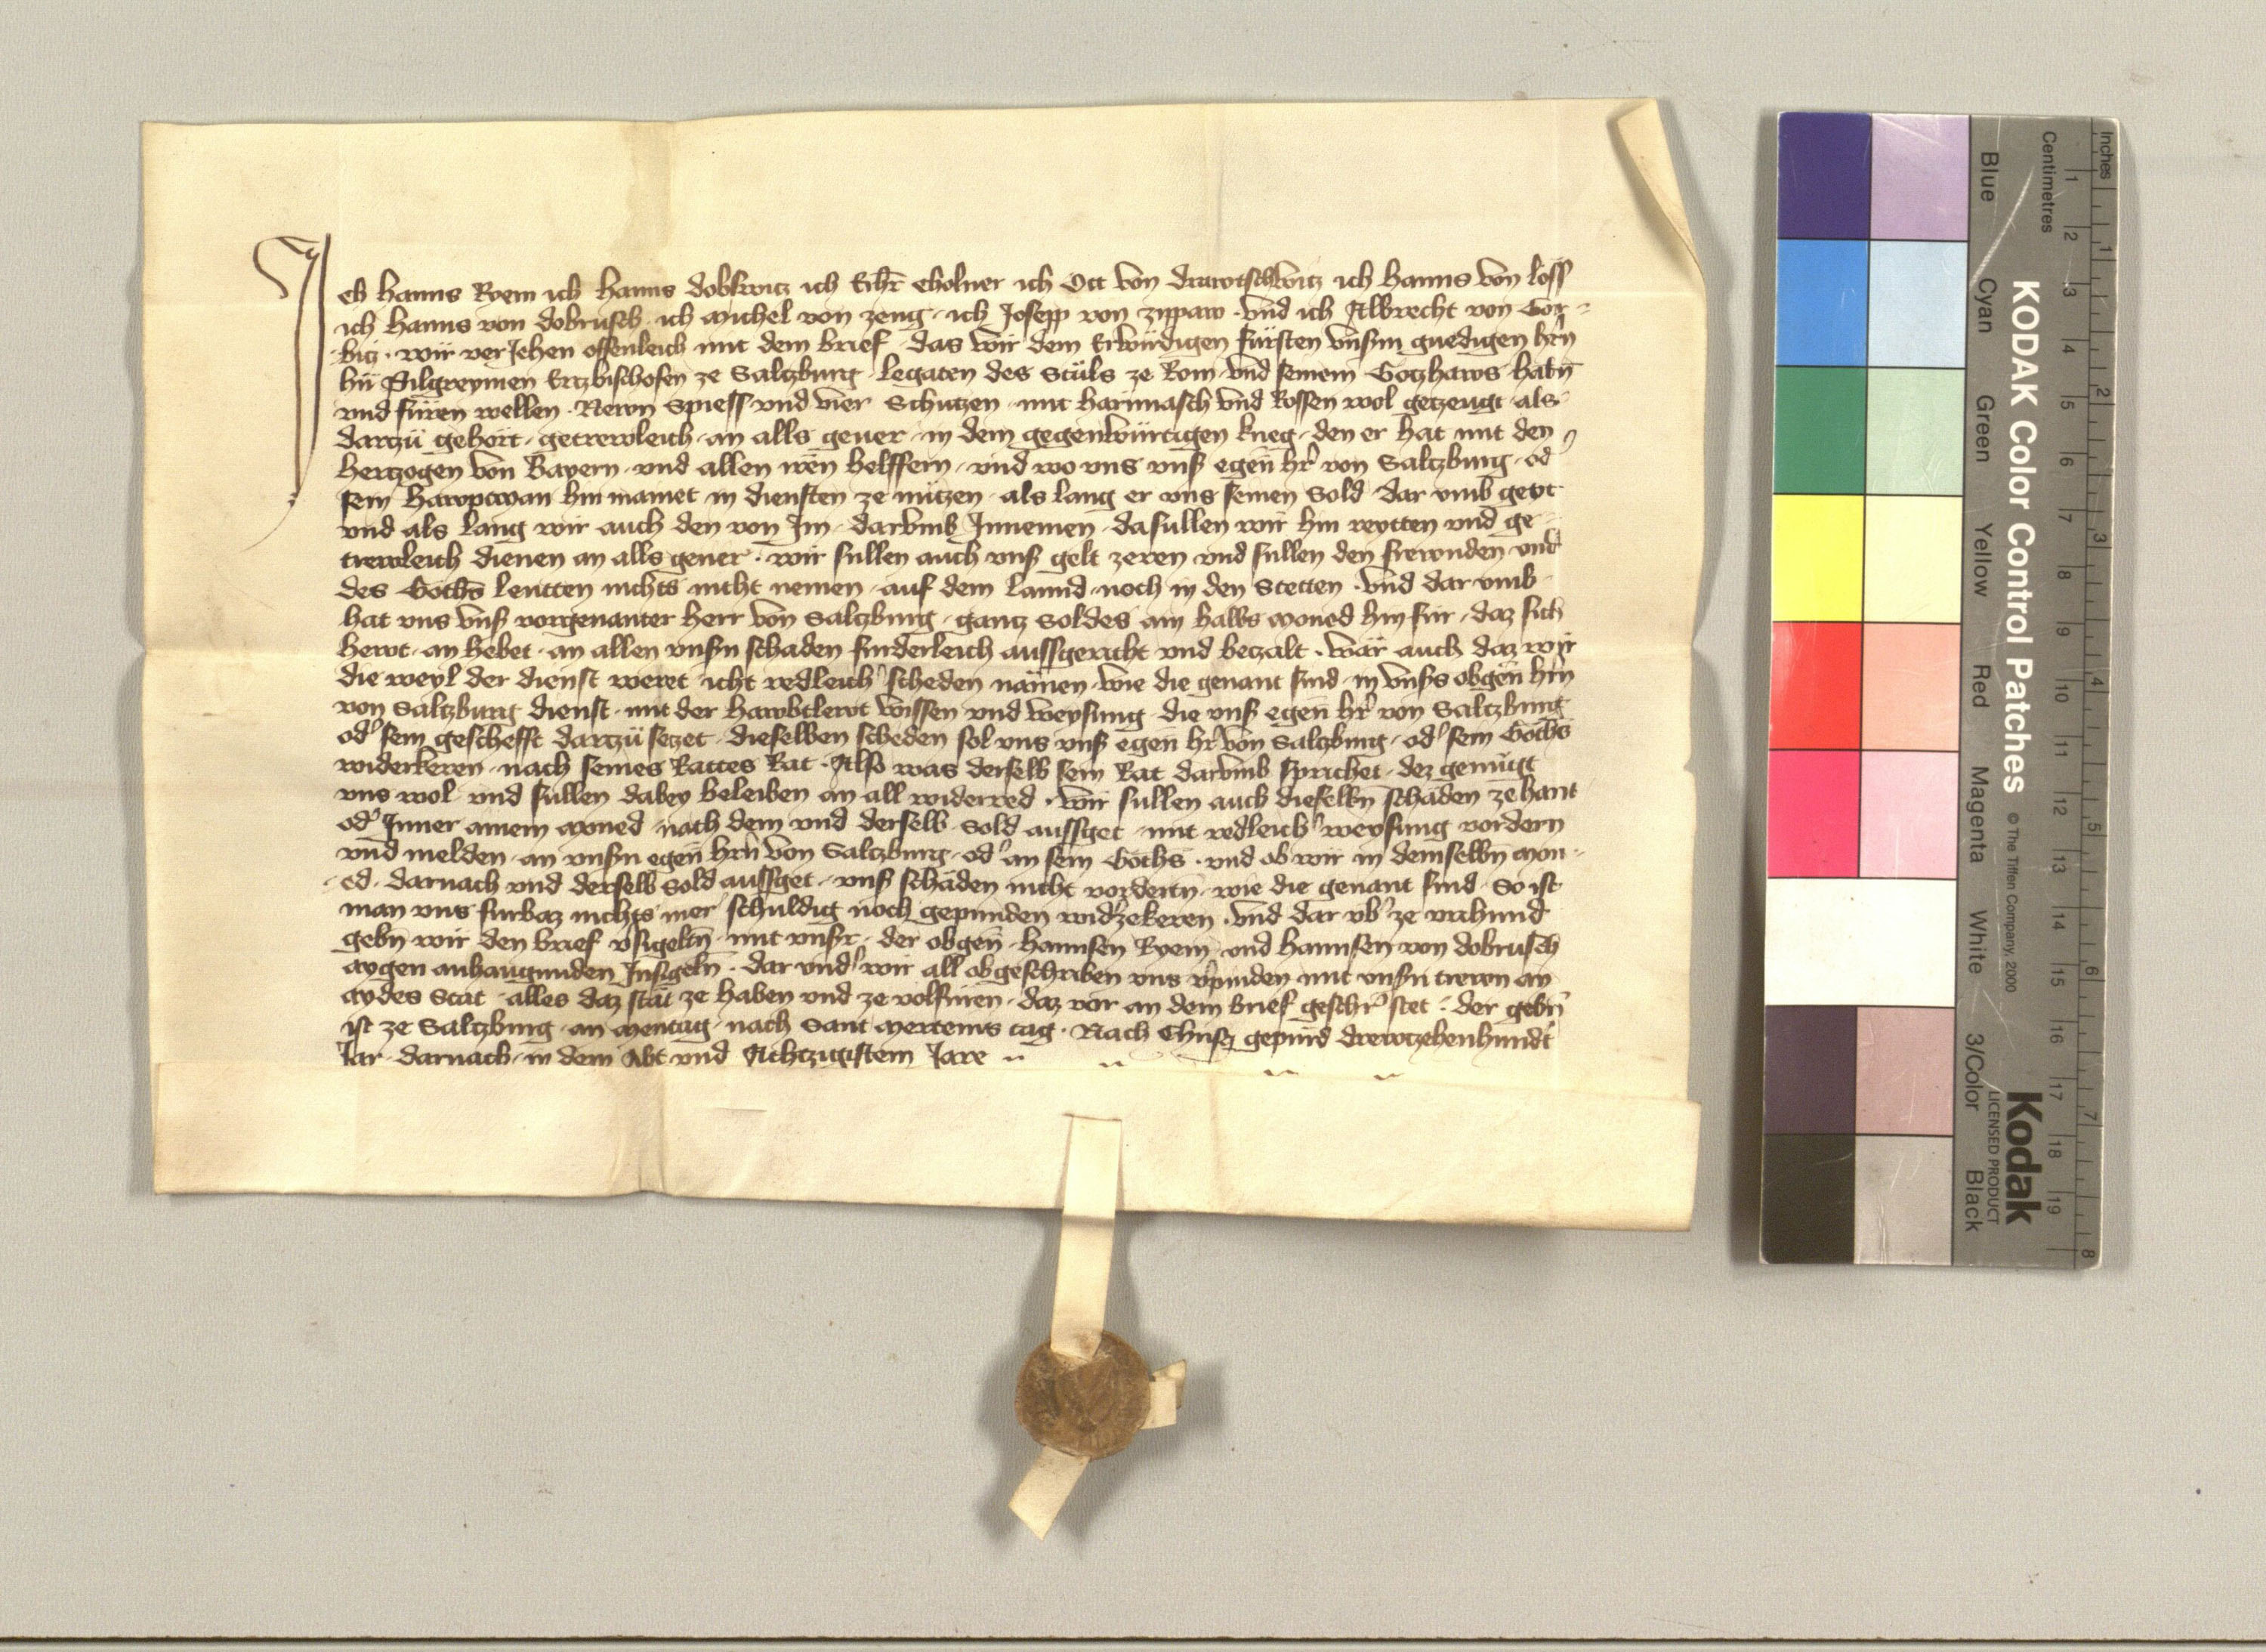 Ich Hanns Ryem ich Hanns dobkwitz ich Erhr̄ Eholner ich Ott von drawtschwitz ich Hanns von loss
ich Hanns von dobrusch ich Michel von zeng ich Josepp von znpaw vnd ich Albrecht von Gor=
bitz wir veriehen offenleich mit dem brief das wir dem Erwirdigen fürsten vnsm gnedigen hr̄n
hn̄ Pilgreymen Ertzbischofen ze Saltzburg legaten des Stůls ze Rom vnd seinem Gotzhaws habn̄
vnd fůren wellen Newn Spiess vnd vier Schutzen mit harnnasch vnd Rossen wol getzeugt als
dartzů gehört getrewleich an alls geuer in dem gegenwürtigen krieg den er hat mit den
hertzogen von Bayern vnd allen iren helffern vnd wo vns vnsr egen̄ hr̄ von Saltzburg od
sein hawptman hin mainet in diensten ze nützen als lang er vns seinen Sold dar vmb geyt
vnd als lang wir auch den von Im darvmb Innemen da sullen wir hin reytten vnd ge=
trewleich dienen an alls geuer wir sullen auch vnsr gelt zeren vnd sullen den frewnden vnd
des Gotzhs lewtten nichts nicht nemen auf dem lannd noch in den Stetten vnd dar vmb
hat vns vnsr vorgenanter herr von Saltzburg gantz Soldes ain halbs moned hin für daz sich
hewt an hebet an allen vnsn schaden furderleich aussgericht vnd betzalt wär auch daz wir
die weyl der dienst weret icht redleich scheden nämen wie die genant sind in vnsrs obgen̄ hr̄n
von Saltzburg dienst mit der hawbtlewt wissen vnd weysung die vnsr egen̄ hr̄ von Saltzburg
od sein geschefft dartzů setzet dieselben scheden sol vns vnsr egen̄ hr̄ von Saltzburg od sein Gotzhs
widerkeren nach seines Rattes Rat Also was derselb sein Rat darvmb sprichet dez genůgt
vns wol vnd sullen dabey beleiben an all widerred wir sullen auch dieselbn̄ schäden zehant
od Inner ainem moned nach dem vnd derselb Sold aussget mit redleich weysung vordern
vnd melden an vnsn egen̄ hr̄n von Saltzburg od an sein Gotzhs vnd ob wir in demselbn̄ mon=
ed darnach vnd derselb Sold aussget vnsr schäden nicht vordertn̄ wie die genant sind So ist
man vns furbaz nichts mer schuldig noch gepunden widzekeren vnd dar vb ze vrchund
gebn̄ wir den brief vsigeltn̄ mit vnsr der obgen̄ Hannsen Ryem vnd Hannsen von dobrusch
aygen anhangunden Insigeln̄ dar vnd wir all obgeschriben vns vpinden mit vnsn trewn an
aydes Stat alles daz stät ze haben vnd ze volfüren daz vor an dem brief geschr̄ stet der gebn̄
ist ze Saltzburg an Mentag nach Sant Merteins tag Nach Christi gepurd drewtzehenhundt
Jar darnach in dem Abt vnd Achtzigistem Jare
KODAK Color Control Patches © The Tiffen Company, 2000
Kodak
LICENSED PRODUCT
Inches
Centimetres
1 2 3 4 5 6 7 8 9 10 11 12 13 14 15 16 17 18 19
1 2 3 4 5 6 7 8
Blue Cyan Green Yellow Red Magenta White 3/Color Black